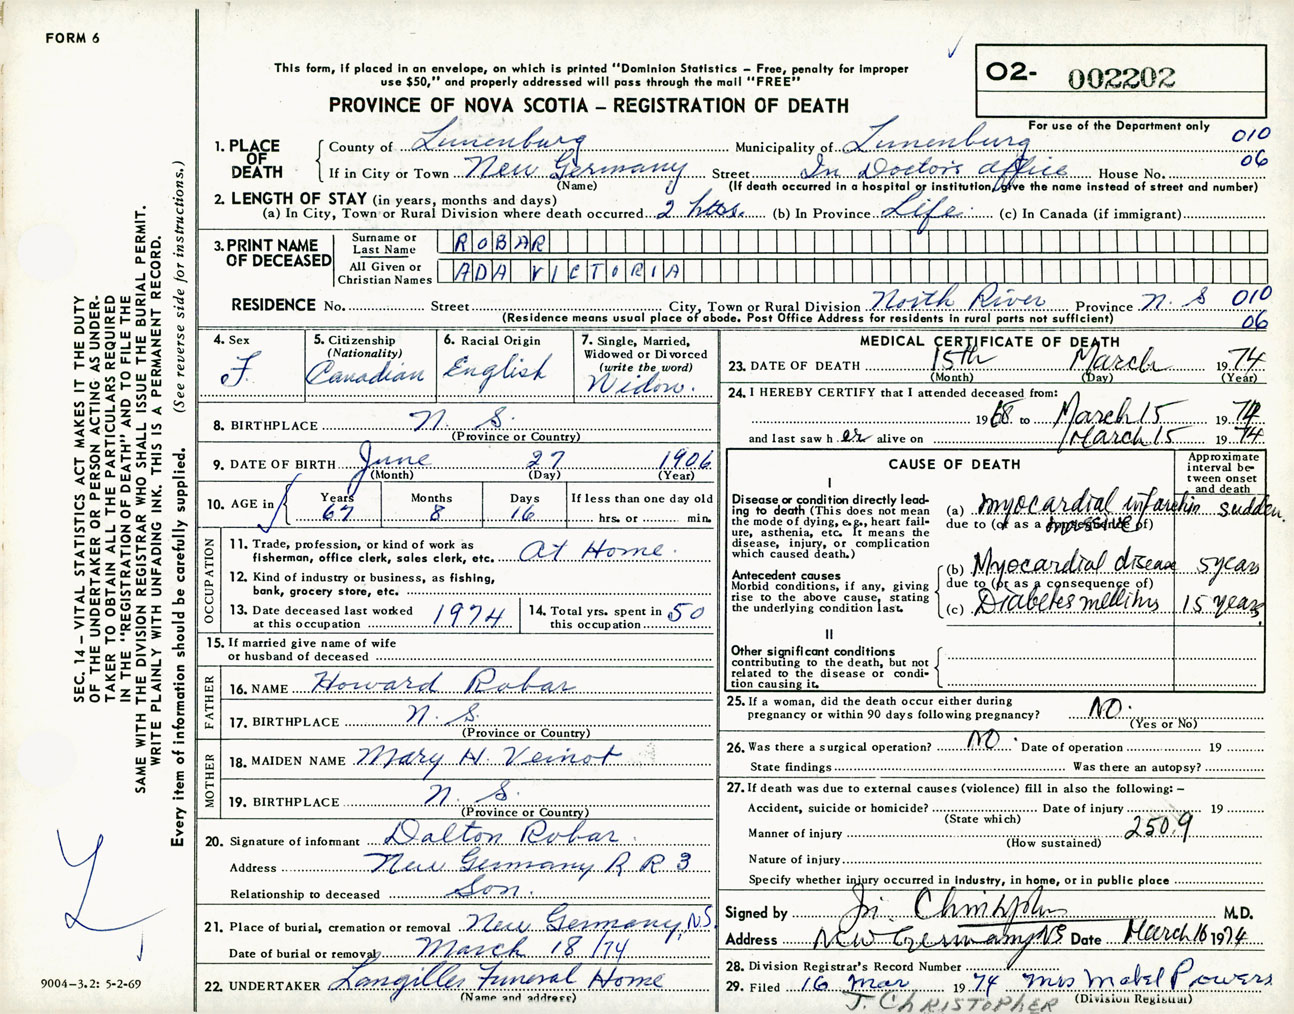 FORM 6
This form, if placed in an envelope, on which is printed "Dominion Statistics – Free, penalty for improper
use $50," and properly addressed will pass through the mail "FREE"
PROVINCE OF NOVA SCOTIA – REGISTRATION OF DEATH
O2- 002202
For use of the Department only
1. PLACE OF DEATH
County of Lunenburg Municipality of Lunenburg 010
If in City or Town New Germany Street In Doctor's office House No. 06
(Name) (If death occurred in a hospital or institution, give the name instead of street and number)
2. LENGTH OF STAY (in years, months and days)
(a) In City, Town or Rural Division where death occurred 2 hrs. (b) In Province Life (c) In Canada (if immigrant)
3. PRINT NAME OF DECEASED
Surname or Last Name ROBAR
All Given or Christian Names ADA VICTORIA
RESIDENCE No. Street City, Town or Rural Division North River Province N. S 010
(Residence means usual place of abode. Post Office Address for residents in rural parts not sufficient) 06
4. Sex
F.
5. Citizenship
(Nationality)
Canadian
6. Racial Origin
English
7. Single, Married,
Widowed or Divorced
(write the word)
Widow.
8. BIRTHPLACE N. S.
(Province or Country)
9. DATE OF BIRTH June 27 1906
(Month) (Day) (Year)
10. AGE in Years Months Days If less than one day old
67 8 16 hrs. or min.
OCCUPATION
11. Trade, profession, or kind of work as
fisherman, office clerk, sales clerk, etc. At Home.
12. Kind of industry or business, as fishing,
bank, grocery store, etc.
13. Date deceased last worked
at this occupation 1974
14. Total yrs. spent in
this occupation 50
15. If married give name of wife
or husband of deceased
FATHER
16. NAME Howard Robar
17. BIRTHPLACE N. S.
(Province or Country)
MOTHER
18. MAIDEN NAME Mary H. Veinot
19. BIRTHPLACE N. S.
(Province or Country)
20. Signature of informant Dalton Robar.
Address New Germany R R 3
Relationship to deceased Son.
21. Place of burial, cremation or removal New Germany, N.S.
Date of burial or removal March 18 /74
22. UNDERTAKER Langilles Funeral Home
(Name and address)
MEDICAL CERTIFICATE OF DEATH
23. DATE OF DEATH 15th March 1974
(Month) (Day) (Year)
24. I HEREBY CERTIFY that I attended deceased from:
1968 to March 15 1974
and last saw her alive on March 15 1974
CAUSE OF DEATH
Approximate
interval be-
tween onset
and death
I
Disease or condition directly lead-
ing to death (This does not mean
the mode of dying, e.g., heart fail-
ure, asthenia, etc. It means the
disease, injury, or complication
which caused death.)
(a) Myocardial infarction sudden.
due to (or as a consequence of)
Antecedent causes
Morbid conditions, if any, giving
rise to the above cause, stating
the underlying condition last.
(b) Myocardial disease 5 years
due to (or as a consequence of)
(c) Diabetes mellitus 15 years
II
Other significant conditions
contributing to the death, but not
related to the disease or condi-
tion causing it.
25. If a woman, did the death occur either during
pregnancy or within 90 days following pregnancy? NO.
(Yes or No)
26. Was there a surgical operation? NO. Date of operation 19
State findings Was there an autopsy?
27. If death was due to external causes (violence) fill in also the following: –
Accident, suicide or homicide? Date of injury 19
(State which)
Manner of injury 250.9
(How sustained)
Nature of injury
Specify whether injury occurred in industry, in home, or in public place
Signed by J. Christopher M.D.
Address New Germany NS Date March 16 1974
28. Division Registrar's Record Number
29. Filed 16 Mar 1974 Mrs Mabel Powers
(Division Registrar)
J. CHRISTOPHER
SEC. 14 – VITAL STATISTICS ACT MAKES IT THE DUTY
OF THE UNDERTAKER OR PERSON ACTING AS UNDER-
TAKER TO OBTAIN ALL THE PARTICULARS REQUIRED
IN THE "REGISTRATION OF DEATH" AND TO FILE THE
SAME WITH THE DIVISION REGISTRAR WHO SHALL ISSUE THE BURIAL PERMIT.
WRITE PLAINLY WITH UNFADING INK. THIS IS A PERMANENT RECORD.
Every item of information should be carefully supplied. (See reverse side for instructions.)
9004-3.2: 5-2-69